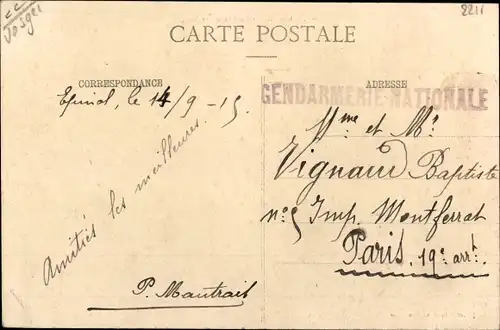 Vosges
2211
CARTE POSTALE
CORRESPONDANCE
ADRESSE
GENDARMERIE NATIONALE
Epinal, le 14/9-15.
Amitiés les meilleures.
P. Mautrait
Mme et Mr
Vignaud Baptiste
n° 5 Imp. Montferrat
Paris. 19e arrt.